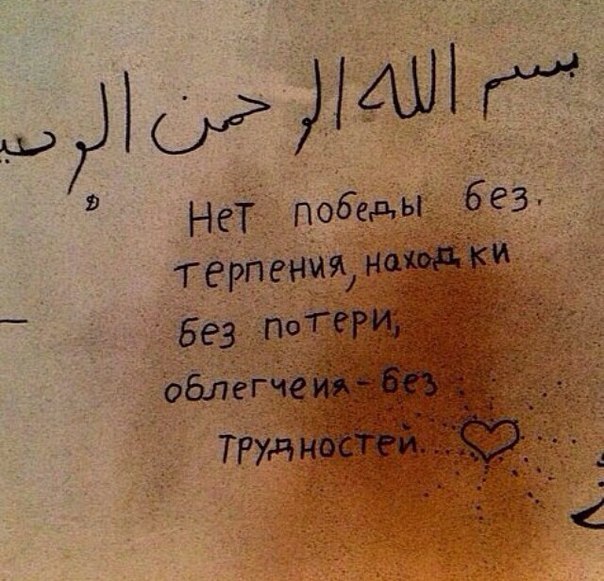 بسم الله الرحمن الرحيـ
Нет победы без
терпения, находки
без потери,
облегчеия - без
трудностей.